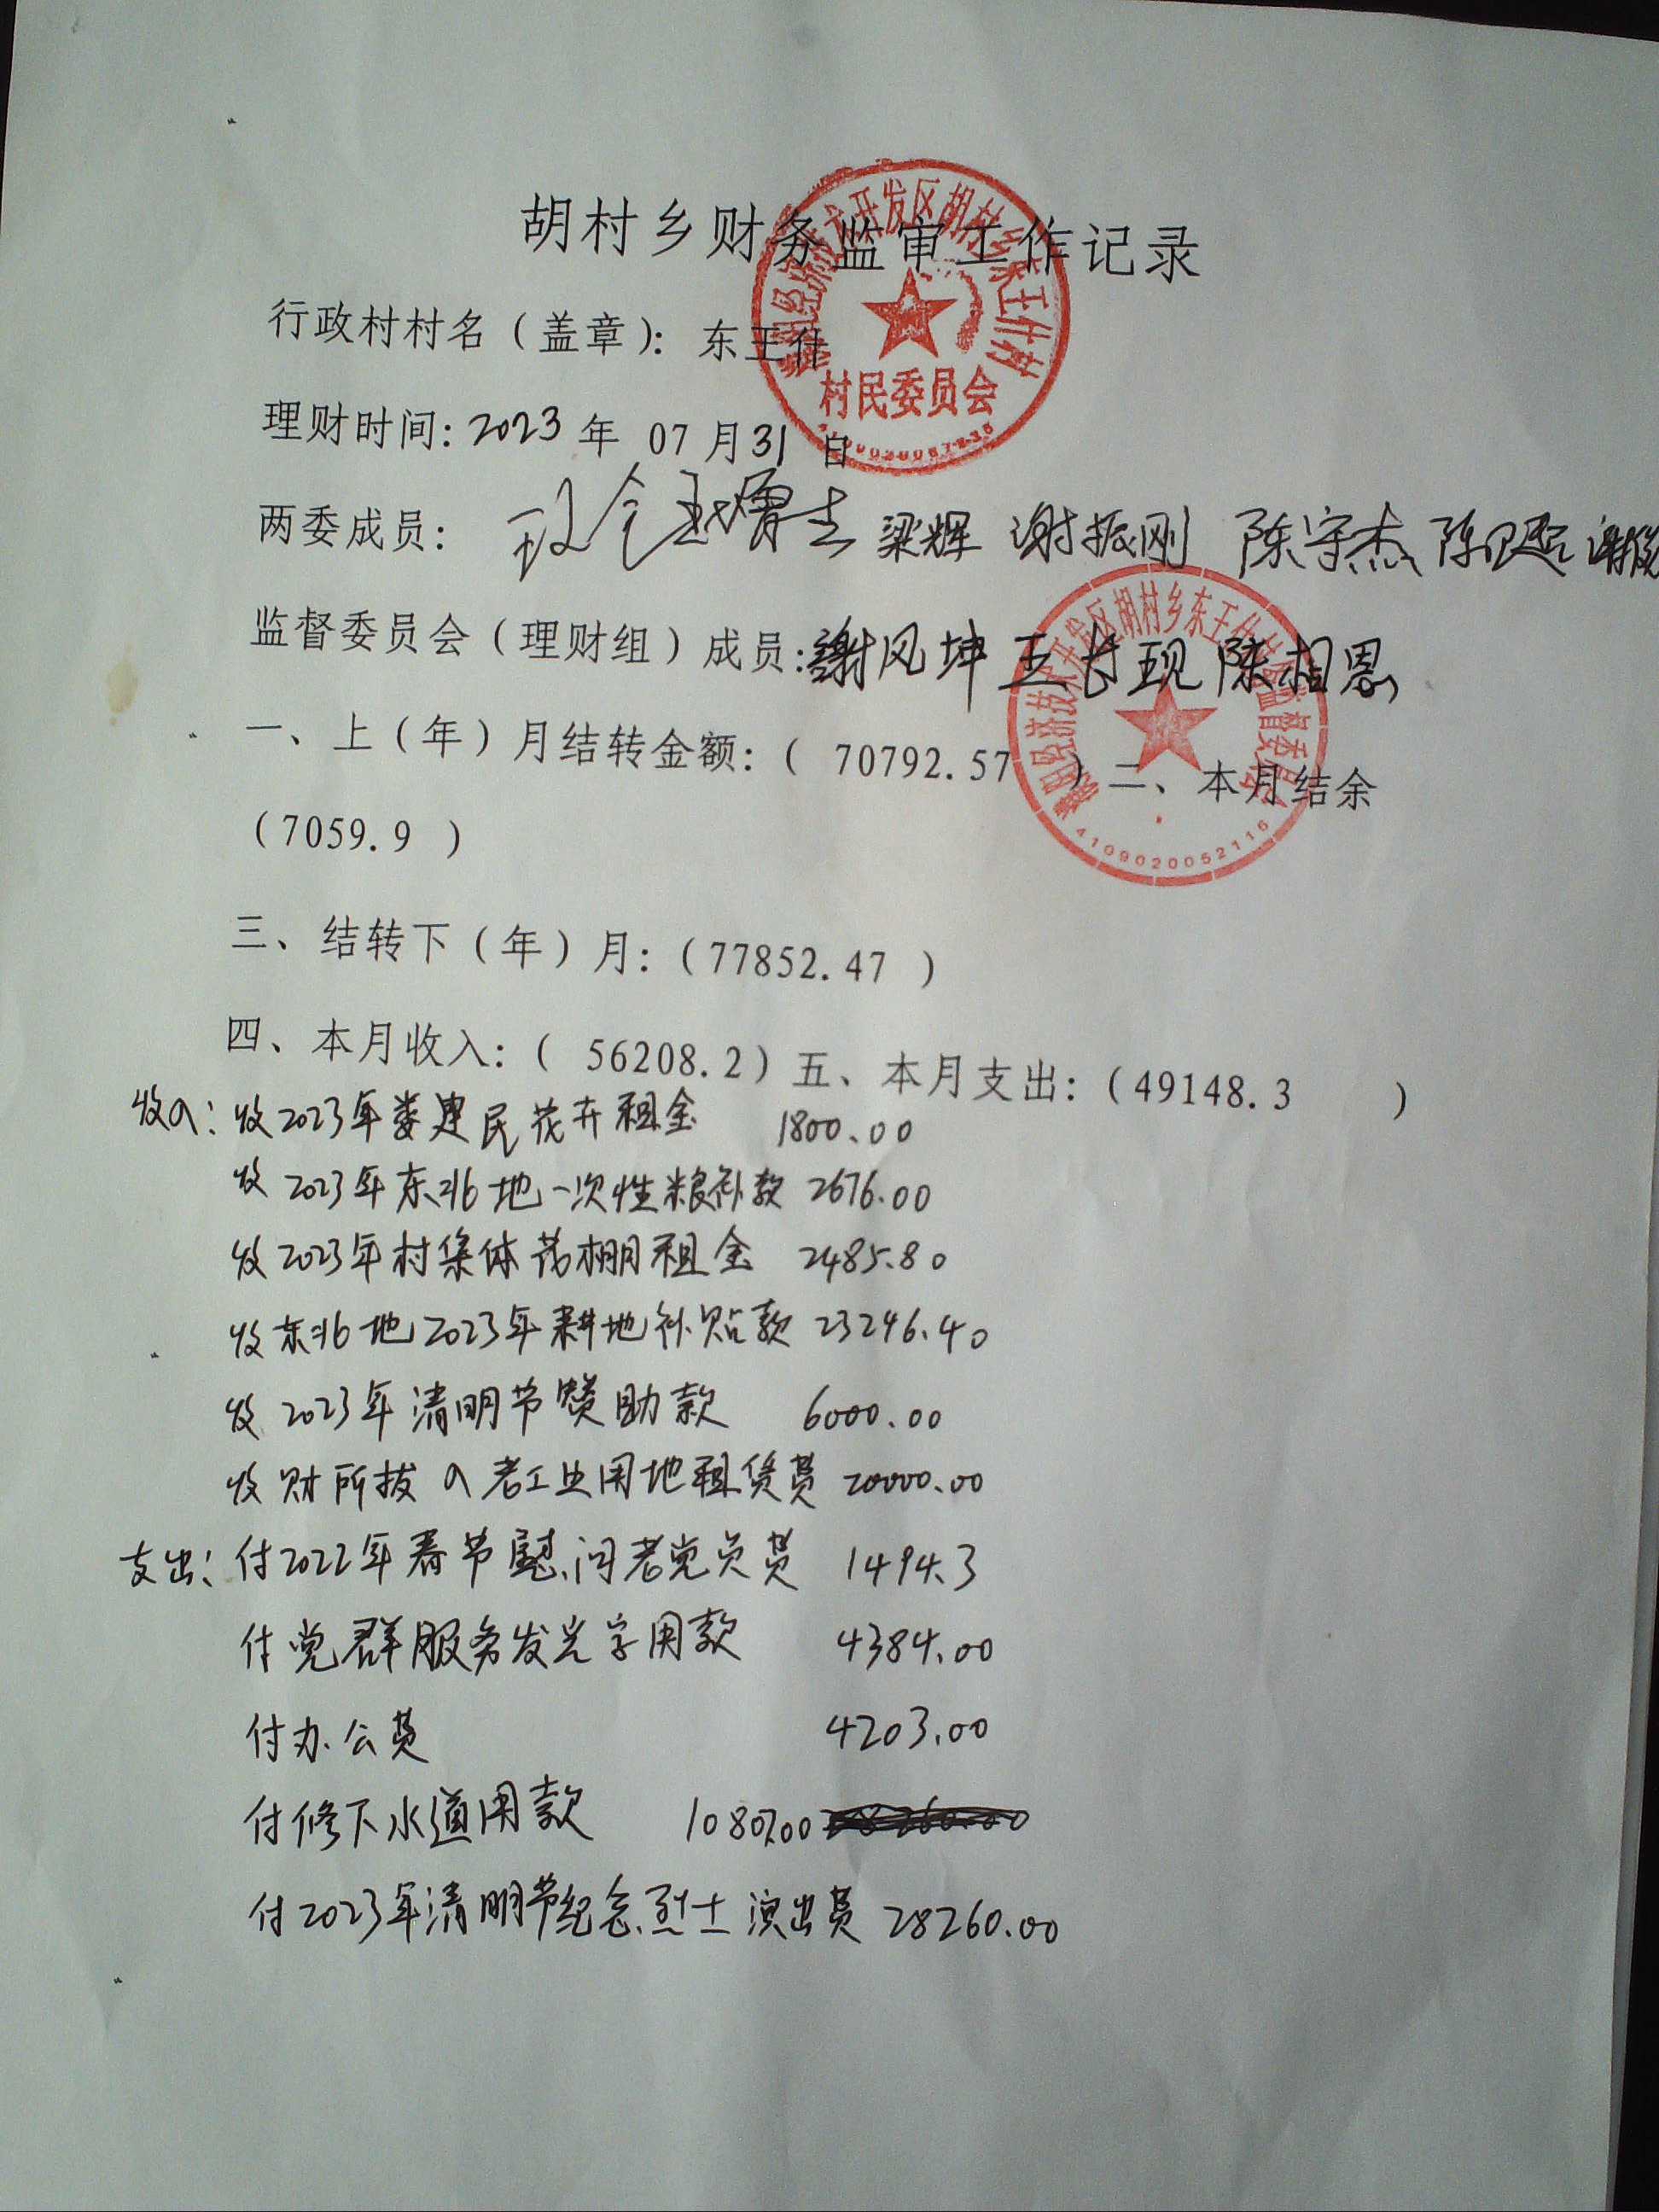 胡村乡财务监审工作记录
行政村村名（盖章）：东王什
村民委员会
理财时间：2023年 07月31日
两委成员： 梁辉 谢振刚 陈守杰
监督委员会（理财组）成员：谢凤坤 王长现 陈相恩
一、上（年）月结转金额：（ 70792.57 ）二、本月结余
（7059.9 ）
4109020052116
三、结转下（年）月：（77852.47 ）
四、本月收入：（ 56208.2）五、本月支出：（49148.3 ）
收入：收2023年娄建民花卉租金 1800.00
收2023年东北地一次性粮补款 2676.00
收2023年村集体 棚租金 2485.80
收东北地2023年耕地补贴款 23246.40
收2023年清明节赞助款 6000.00
收财所拔入老工业用地租赁费 20000.00
支出：付2022年春节慰问老党员费 1494.3
付党群服务发光字用款 4384.00
付办公费 4203.00
付修下水道用款 10807.00 28260.00
付2023年清明节纪念烈士演出费 28260.00